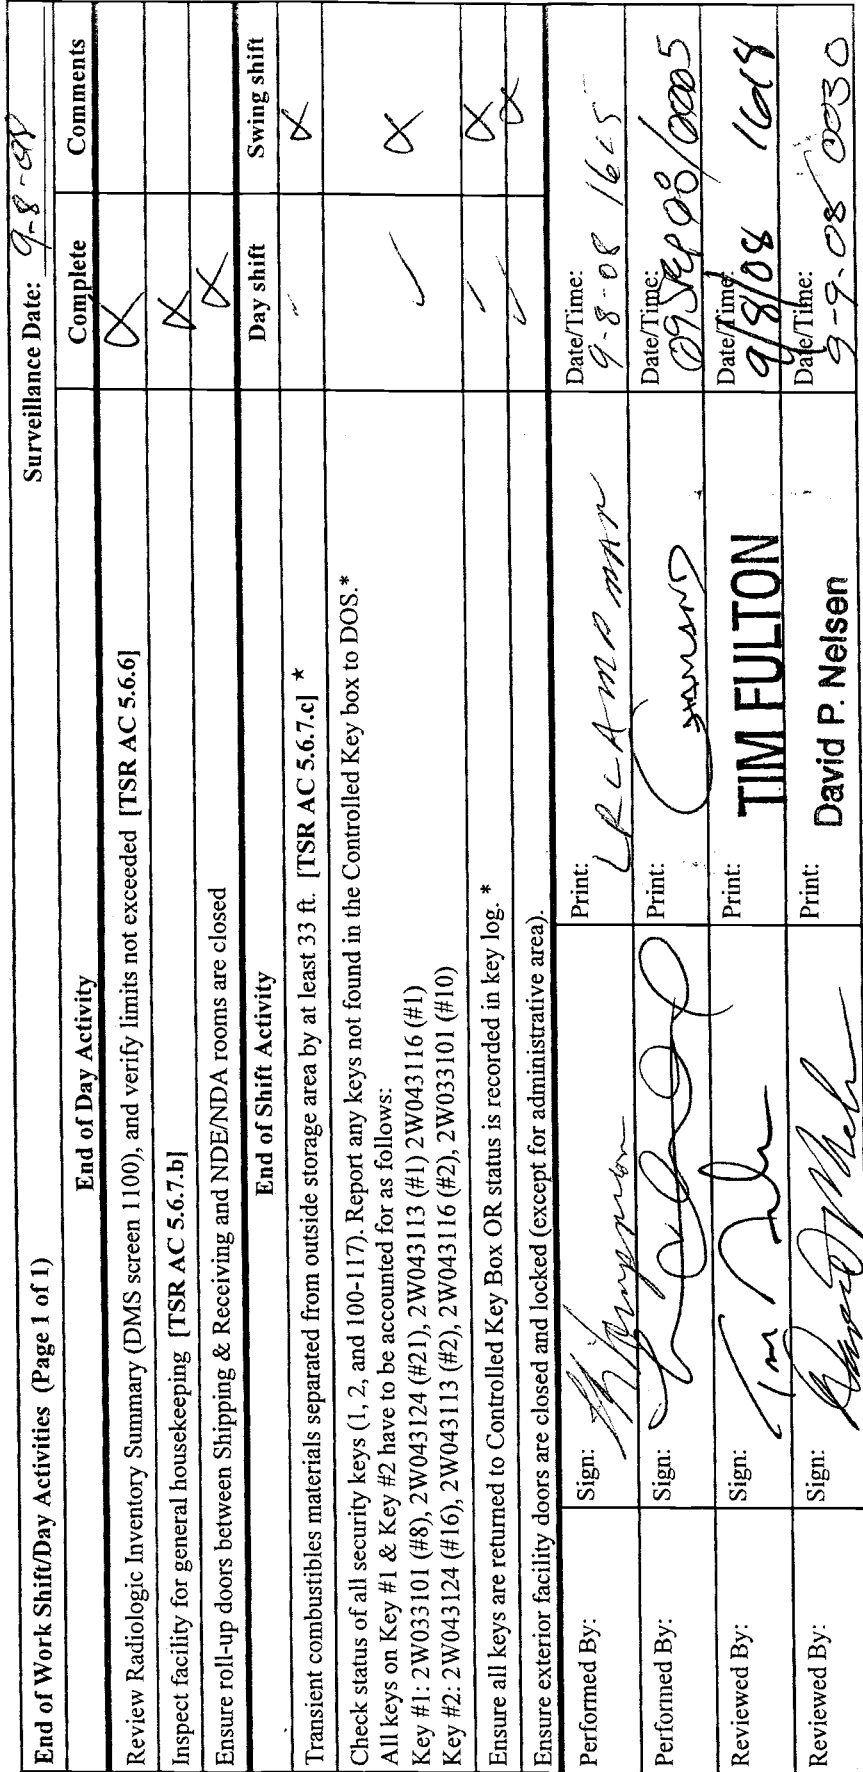 End of Work Shift/Day Activities (Page 1 of 1) Surveillance Date: 9-8-08
End of Day Activity Complete Comments
Review Radiologic Inventory Summary (DMS screen 1100), and verify limits not exceeded [TSR AC 5.6.6]
Inspect facility for general housekeeping [TSR AC 5.6.7.b]
Ensure roll-up doors between Shipping & Receiving and NDE/NDA rooms are closed
End of Shift Activity Day shift Swing shift
Transient combustibles materials separated from outside storage area by at least 33 ft. [TSR AC 5.6.7.c] *
Check status of all security keys (1, 2, and 100-117). Report any keys not found in the Controlled Key box to DOS.*
All keys on Key #1 & Key #2 have to be accounted for as follows:
Key #1: 2W033101 (#8), 2W043124 (#21), 2W043113 (#1) 2W043116 (#1)
Key #2: 2W043124 (#16), 2W043113 (#2), 2W043116 (#2), 2W033101 (#10)
Ensure all keys are returned to Controlled Key Box OR status is recorded in key log. *
Ensure exterior facility doors are closed and locked (except for administrative area).
Performed By: Sign: Print: Date/Time:
9-8-08 1625
Performed By: Sign: Print: Date/Time:
09SEP08/0005
Reviewed By: Sign: Print: TIM FULTON Date/Time:
9/8/08
Reviewed By: Sign: Print: David P. Nelsen Date/Time:
9-9-08 0030